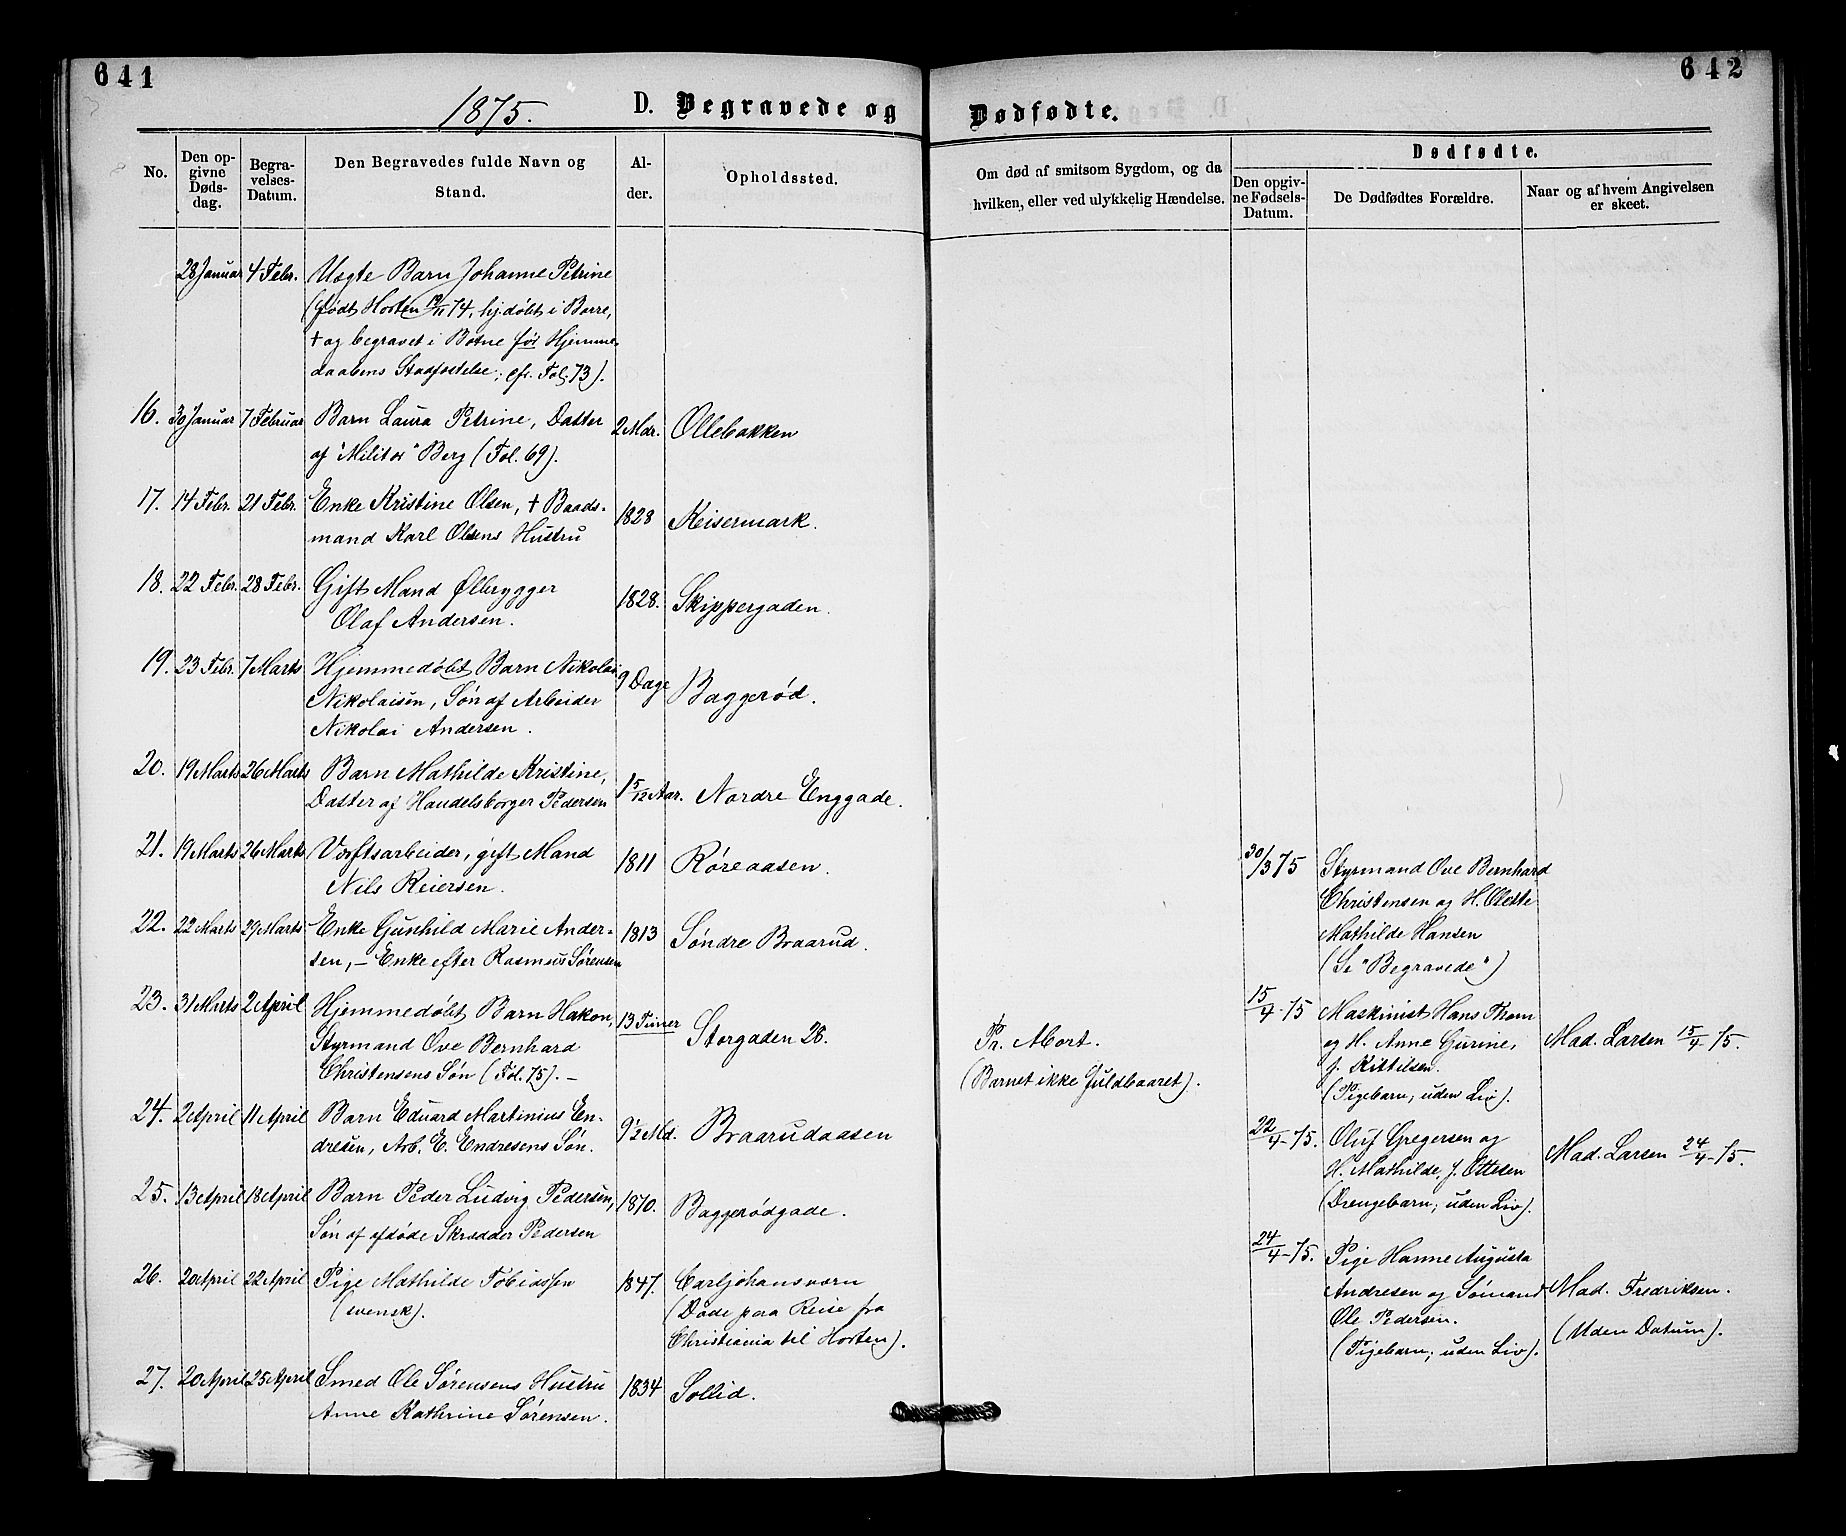 641
642
1875.
D. Begravede og
Dødfødte.
No.
Den op-
givne
Døds-
dag.
Begra-
velses-
Datum.
Den Begravedes fulde Navn og
Stand.
Al-
der.
Opholdssted.
Om død af smitsom Sygdom, og da
hvilken, eller ved ulykkelig Hændelse.
Dødfødte.
Den opgiv-
ne Fødsels-
Datum.
De Dødfødtes Forældre.
Naar og af hvem Angivelsen
er skeet.
28 Januar 4 Febr. Uægte Barn Johanne Petrine
(født Horten 74, hj.døbt i Borre,
+ og begravet i Botne før Hjemme-
daabens Stadfæstelse; cfr. Fol. 73).
16. 30 Januar 7 Februar Barn Laura Petrine, Datter 2 Mdr. Ollebakken
af "Militær" Berg (Fol. 69).
17. 14 Febr. 21 Febr. Enke Kristine Olsen, + Baads- 1828 Keisermark.
mand Karl Olsens Hustru
18. 22 Febr. 28 Febr. Gift Mand Ølbrygger 1828. Skippergaden.
Olaf Andersen.
19. 23 Febr. 7 Marts Hjemmedøbt Barn Nikolai 9 Dage Baggerød.
Nikolaisen, Søn af Arbeider
Nikolai Andersen.
20. 19 Marts 26 Marts Barn Mathilde Kristine, 1 5/12 Aar. Nordre Enggade.
Datter af Handelsborger Pedersen
21. 19 Marts 26 Marts Værftsarbeider, gift Mand 1811 Røreaasen.
Nils Reiersen.
22. 22 Marts 29 Marts Enke Gunhild Marie Ander- 1813 Søndre Braarud.
sen, – Enke efter Rasmus Sørensen
23. 31 Marts 2 April Hjemmedøbt Barn Hakon, 13 Timer Storgaden 28.
Styrmand Ove Bernhard
Christensens Søn (Fol. 75). –
24. 2 April 11 April Barn Eduard Martinius En- 9 1/2 Md. Braarudaasen
dresen, Arb. E. Endresens Søn.
25. 13 April 18 April Barn Peder Ludvig Pedersen, 1870. Baggerødgade.
Søn af afdøde Skrædder Pedersen
26. 20 April 22 April Pige Mathilde Tobiassen 1847. Carljohansværn
(svensk). (Døde paa Reise fra
Christiania til Horten).
27. 20 April 25 April Smed Ole Sørensens Hustru 1834 Sollid.
Anne Kathrine Sørensen.
30/3 75 Styrmand Ove Bernhard
Christensen og H. Olette
Mathilde Hansen
(Se "Begravede")
15/4-75 Maskinist Hans Thom
Pr. Mort. og H. Anne Gurine, Mad. Larsen 15/4-75.
(Barnet ikke fuldbaaret). f. Kittelsen.
(Pigebarn, uden Liv).
22/4-75. Oluf Gregersen og Mad. Larsen 24/4-75.
H. Mathilde, f. Ottesen
(Drengebarn; uden Liv).
24/4-75. Pige Hanne Augusta
Andresen og Sømand Mad. Fredriksen.
Ole Pedersen. (Uden Datum).
(Pigebarn; uden Liv).